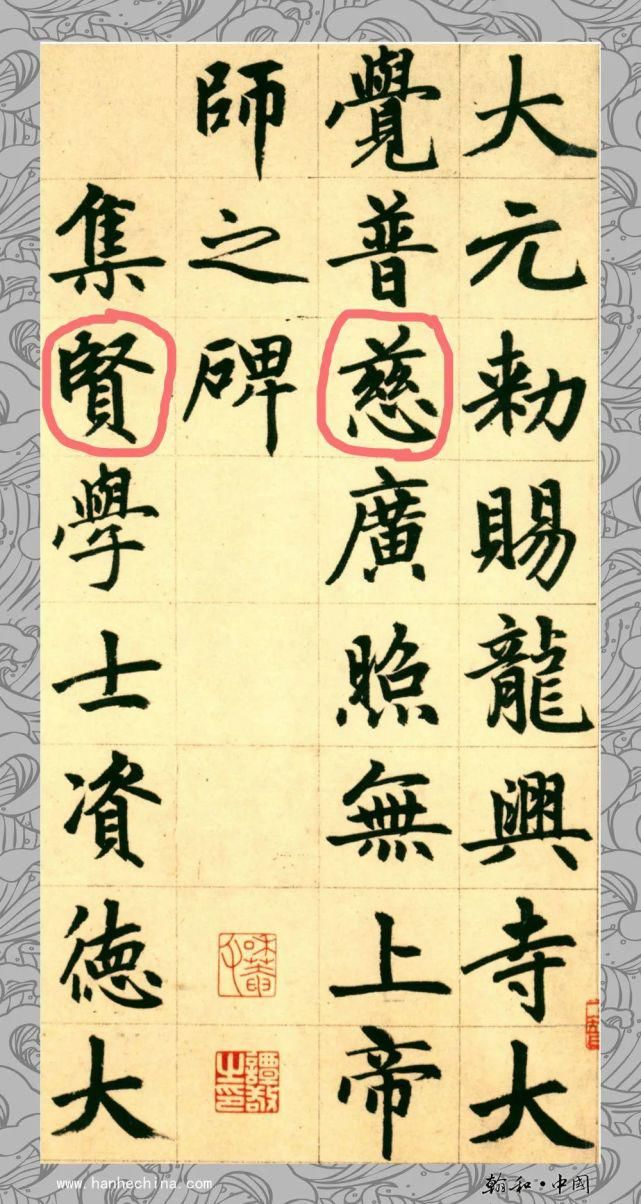 大元敕賜龍興寺大
覺普慈廣照無上帝
師之碑
集賢學士資德大
www.hanhechina.com
翰和·中國